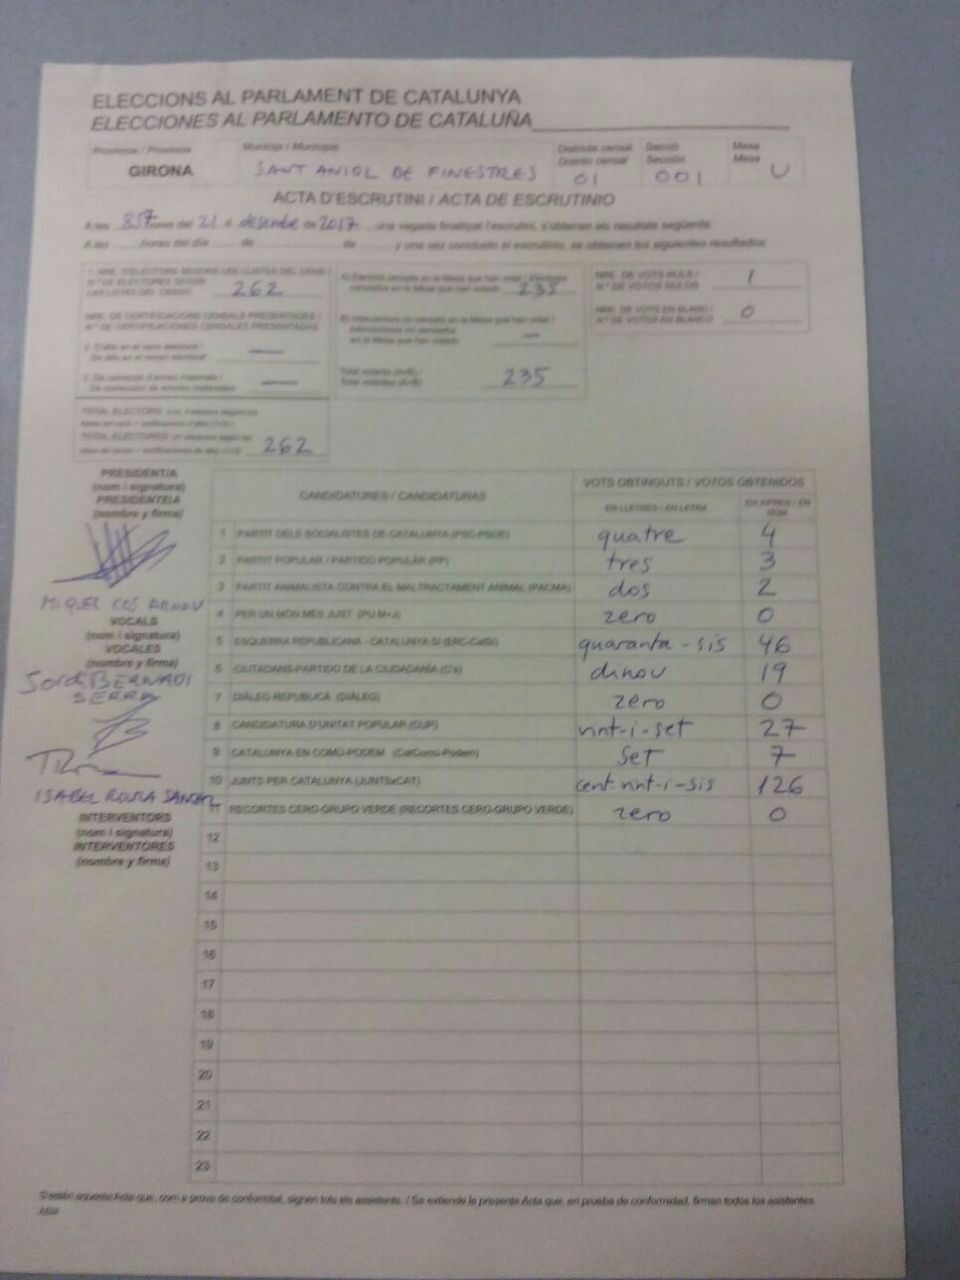 ELECCIONS AL PARLAMENT DE CATALUNYA
ELECCIONES AL PARLAMENTO DE CATALUÑA
Província / Provincia
Municipi / Municipio
Districte censal
Distrito censal
Secció
Sección
Mesa
Mesa
GIRONA
SANT ANIOL DE FINESTRES
01
001
U
ACTA D'ESCRUTINI / ACTA DE ESCRUTINIO
A les 8'57 hores del 21 d desembre de 2017, una vegada finalitzat l'escrutini, s'obtenen els resultats següents:
A las horas del día de de y una vez concluido el escrutinio, se obtienen los siguientes resultados:
1. NRE. D'ELECTORS SEGONS LES LLISTES DEL CENS /
Nº DE ELECTORES SEGÚN
LAS LISTAS DEL CENSO
262
NRE. DE CERTIFICACIONS CENSALS PRESENTADES /
Nº DE CERTIFICACIONES CENSALES PRESENTADAS
—
—
TOTAL ELECTORS
TOTAL ELECTORES
262
235
—
Total votants (A+B) /
Total votantes (A+B)
235
NRE. DE VOTS NULS /
Nº DE VOTOS NULOS
1
NRE. DE VOTS EN BLANC /
Nº DE VOTOS EN BLANCO
0
PRESIDENT/A
(nom i signatura)
PRESIDENTE/A
(nombre y firma)
MIQUEL COS
VOCALS
(nom i signatura)
VOCALES
(nombre y firma)
Jordi BERNADI
SERRA
ISABEL ROURA
INTERVENTORS
(nom i signatura)
INTERVENTORES
(nombre y firma)
CANDIDATURES / CANDIDATURAS
VOTS OBTINGUTS / VOTOS OBTENIDOS
EN LLETRES / EN LETRA
EN XIFRES / EN NÚM.
1 PARTIT DELS SOCIALISTES DE CATALUNYA (PSC-PSOE) quatre 4
2 PARTIT POPULAR / PARTIDO POPULAR (PP) tres 3
3 PARTIT ANIMALISTA CONTRA EL MALTRACTAMENT ANIMAL (PACMA) dos 2
4 PER UN MÓN MÉS JUST (PUM+J) zero 0
5 ESQUERRA REPUBLICANA - CATALUNYA SÍ (ERC-CatSí) quaranta-sis 46
6 CIUTADANS-PARTIDO DE LA CIUDADANÍA (C's) dinou 19
7 DIÀLEG REPUBLICÀ (DIÀLEG) zero 0
8 CANDIDATURA D'UNITAT POPULAR (CUP) vint-i-set 27
9 CATALUNYA EN COMÚ-PODEM (CatComú-Podem) set 7
10 JUNTS PER CATALUNYA (JUNTSxCAT) cent vint-i-sis 126
11 RECORTES CERO-GRUPO VERDE (RECORTES CERO-GRUPO VERDE) zero 0
12
13
14
15
16
17
18
19
20
21
22
23
S'estén aquesta Acta que, com a prova de conformitat, signen tots els assistents. / Se extiende la presente Acta que, en prueba de conformidad, firman todos los asistentes.